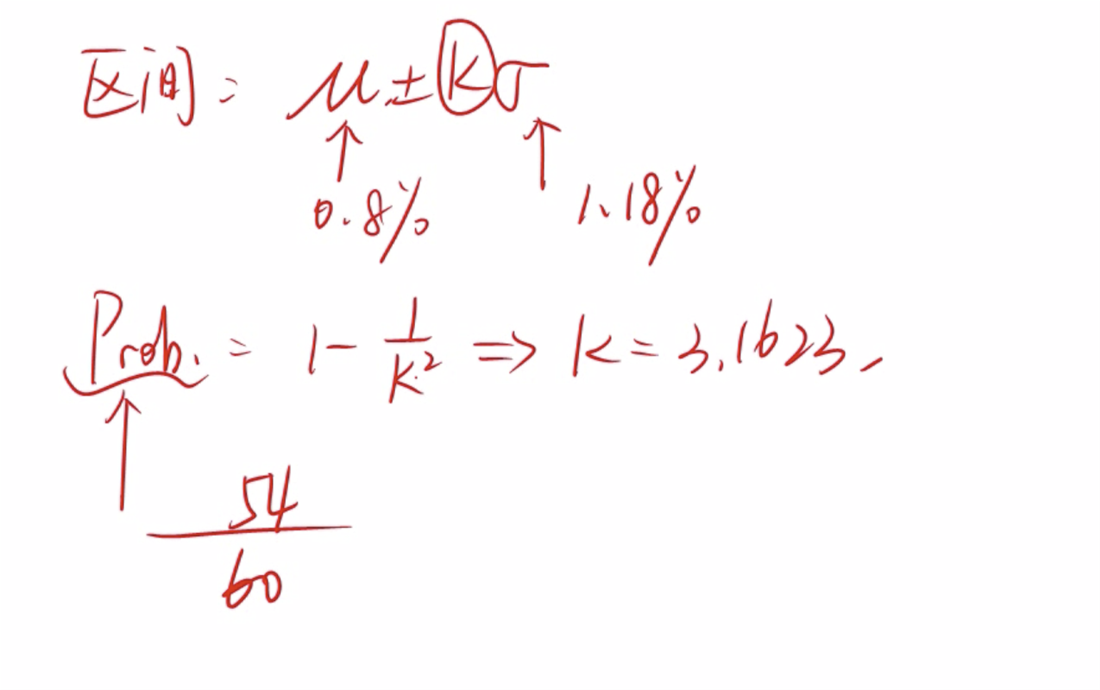 区间: μ ± kσ
↑ ↑
0.8% 1.18%
Prob. = 1 - 1/k² ⇒ k = 3.1623,
↑
54
60